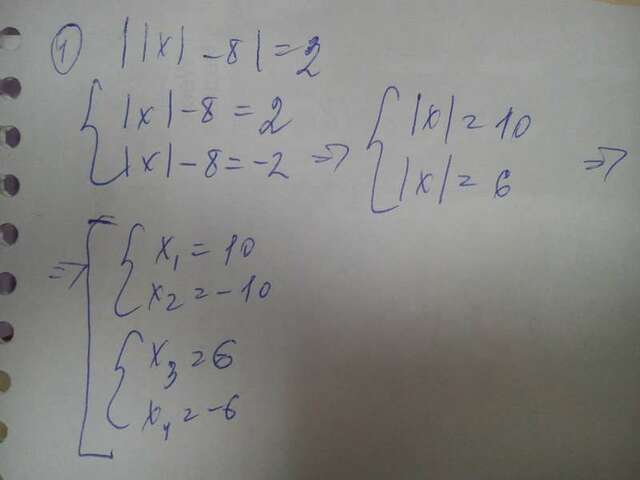 1 ||x| - 8| = 2
{ |x| - 8 = 2
|x| - 8 = -2 => { |x| = 10
|x| = 6 =>
=> [ { x₁ = 10
x₂ = -10
{ x₃ = 6
x₄ = -6